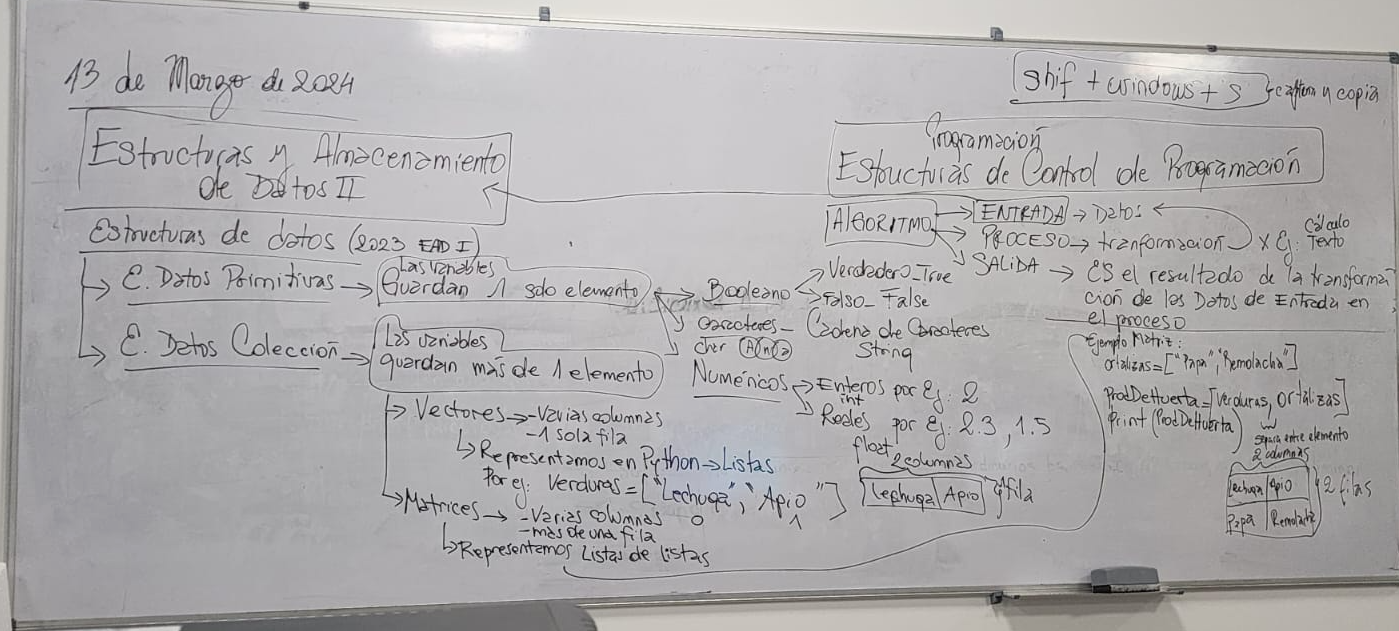 13 de Marzo de 2024
Estructuras y Almacenamiento
de Datos II
Estructuras de datos (2023 EAD I)
E. Datos Primitivas → Las variables
Guardan 1 solo elemento
Booleano
Verdadero_True
Falso_ False
caracteres_ Cadena de Caracteres
char A n a String
Numéricos → Enteros por Ej: 2
int
Reales por Ej: 2.3, 1.5
float
E. Datos Colección → Las variables
guardan más de 1 elemento
Vectores → -Varias columnas
-1 sola fila
Representamos en Python → Listas
Por ej: Verduras = ["Lechuga", "Apio"]
0 1
2 columnas
Lechuga Apio } 1 fila
Matrices → -Varias columnas
-más de una fila
Representamos Listas de listas
shif + windows + s } captura y copia
Programación
Estructuras de Control de Programación
AlGORITMO → ENTRADA → Datos
PROCESO → tranformacion x Ej: Cálculo
Texto
SALIDA → ES el resultado de la transforma
ción de los Datos de Entrada en
el proceso
Ejemplo Matriz:
ortalizas = ["Papa", "Remolacha"]
ProdDeHuerta = [Verduras, ortalizas]
print (ProdDeHuerta)
separa entre elemento
2 columnas
Lechuga Apio
Papa Remolacha
2 filas